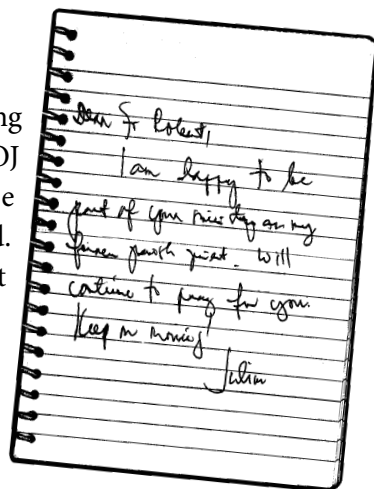 ng
DJ
e
d.
t
Dear Fr Robert,
I am happy to be
part of your ministry as my
former parish priest. Will
continue to pray for you.
Keep on moving!
Julian